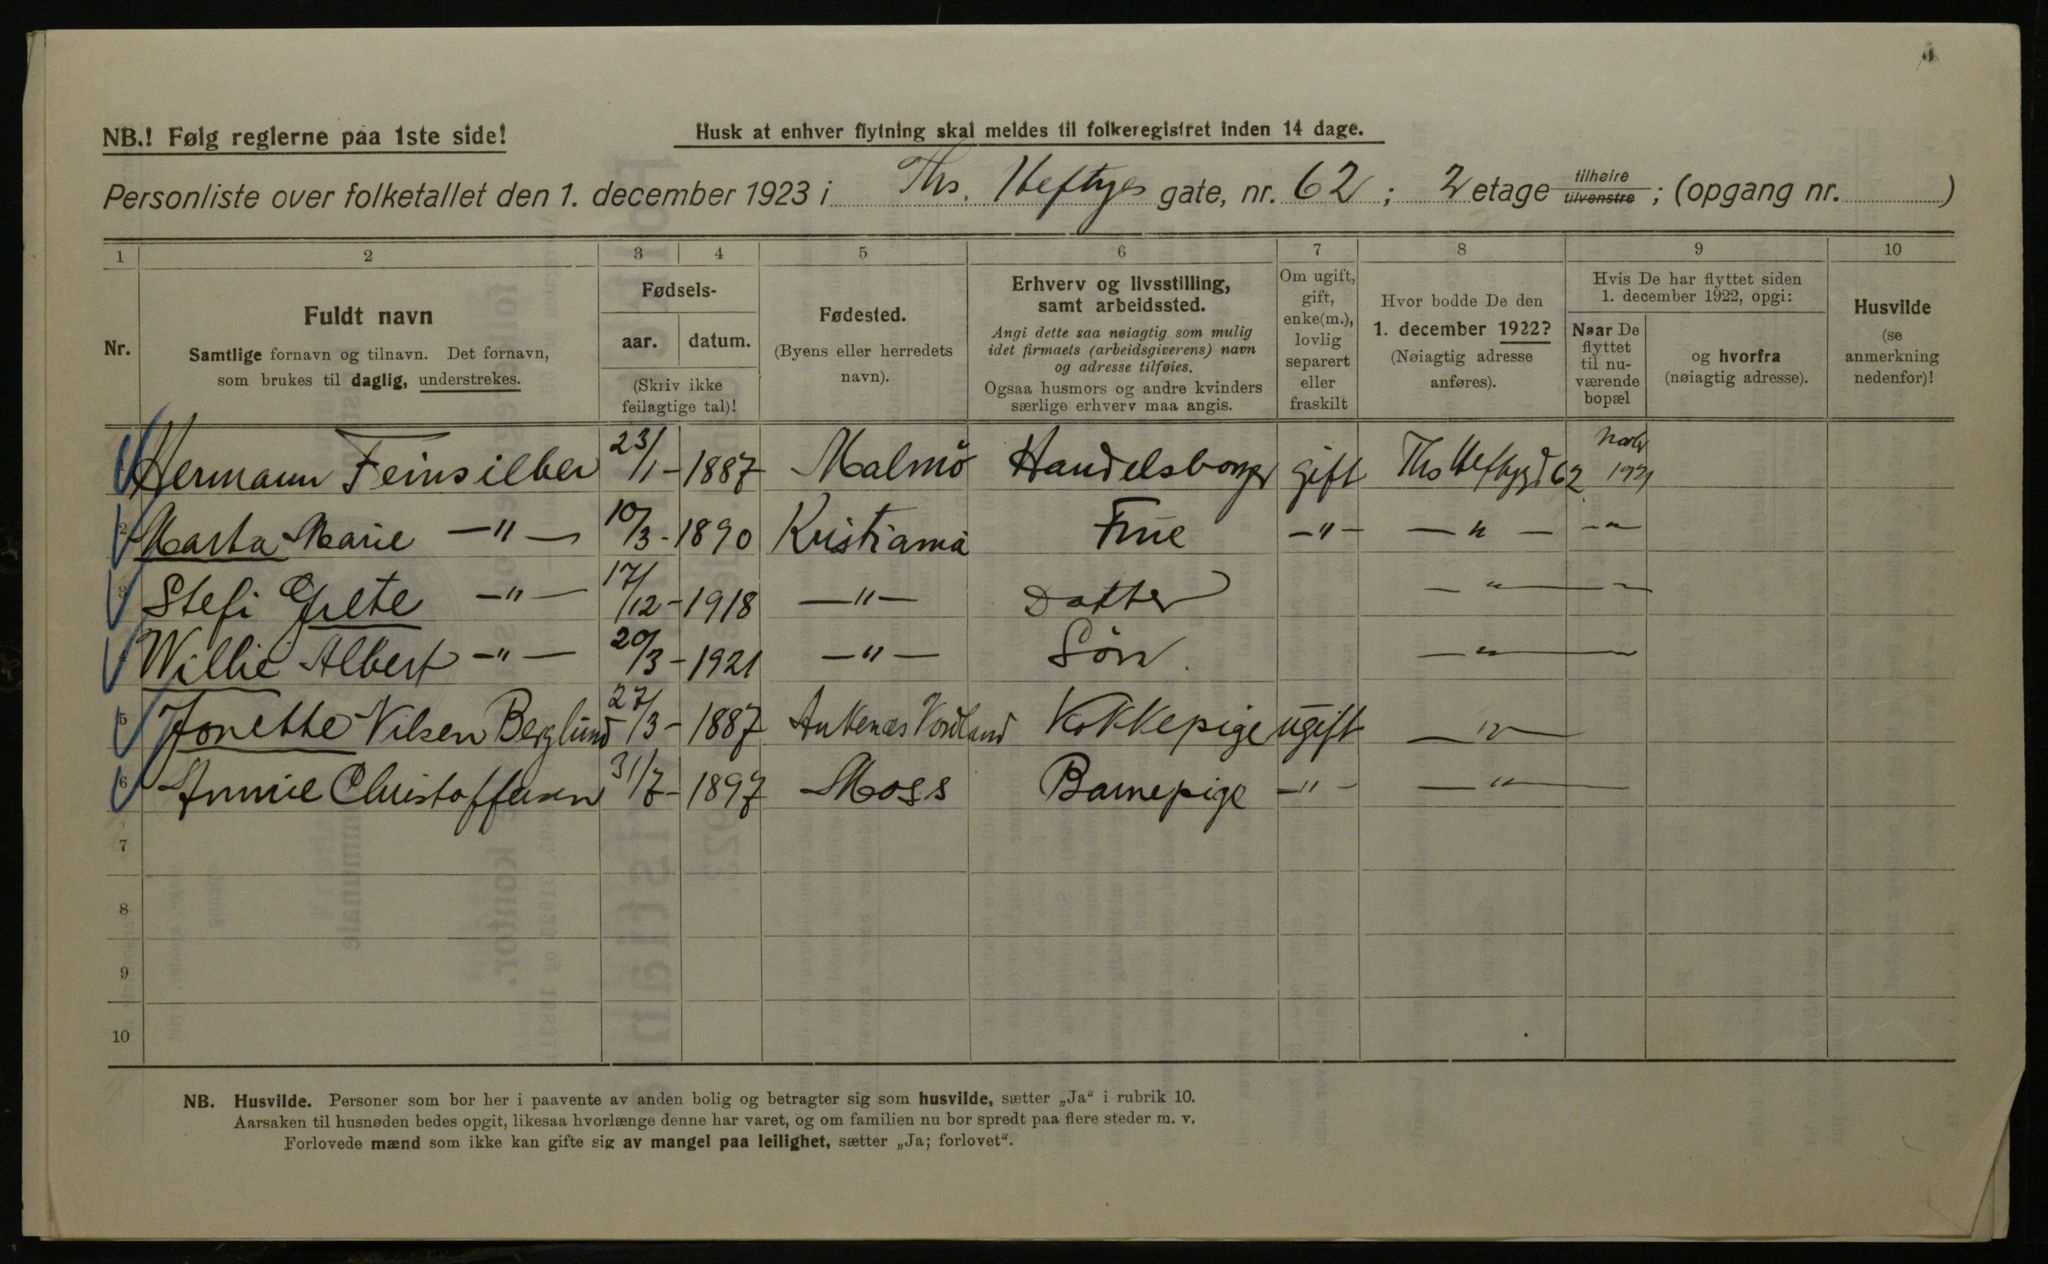 NB.! Følg reglerne paa 1ste side!
Husk at enhver flytning skal meldes til folkeregistret inden 14 dage.
Personliste over folketallet den 1. december 1923 i Ths. Heftyes gate, nr. 62; 2 etage tilhøire tilvenstre; (opgang nr. )
1 2 3 4 5 6 7 8 9 10
Nr.
Fuldt navn
Samtlige fornavn og tilnavn. Det fornavn,
som brukes til daglig, understrekes.
Fødsels-
aar. datum.
(Skriv ikke
feilagtige tal)!
Fødested.
(Byens eller herredets
navn).
Erhverv og livsstilling,
samt arbeidssted.
Angi dette saa nøiagtig som mulig
idet firmaets (arbeidsgiverens) navn
og adresse tilføies.
Ogsaa husmors og andre kvinders
særlige erhverv maa angis.
Om ugift,
gift,
enke(m.),
lovlig
separert
eller
fraskilt
Hvor bodde De den
1. december 1922?
(Nøiagtig adresse
anføres).
Hvis De har flyttet siden
1. december 1922, opgi:
Naar De
flyttet
til nu-
værende
bopæl
og hvorfra
(nøiagtig adresse).
Husvilde
(se
anmerkning
nedenfor)!
1 Hermann Feinsilber 23/1 - 1887 Malmö gift Ths Heftyg 62
2 Marta Marie —"— 10/3 - 1890 Kristiania Frue —"— —"— —"—
3 Stefi Grete —"— 17/12 - 1918 —"— Datter —"—
4 Willie Albert —"— 20/3 - 1921 —"— Søn. —"—
5 Jonette Nilsen Berglund 27/3 - 1887 Ankenæs Nordland Kokkepige ugift —"—
6 Annie Christoffersen 31/7 - 1897 Moss Barnepige —"— —"—
7
8
9
10
NB. Husvilde. Personer som bor her i paavente av anden bolig og betragter sig som husvilde, sætter „Ja“ i rubrik 10.
Aarsaken til husnøden bedes opgit, likesaa hvorlænge denne har varet, og om familien nu bor spredt paa flere steder m. v.
Forlovede mænd som ikke kan gifte sig av mangel paa leilighet, sætter „Ja; forlovet“.